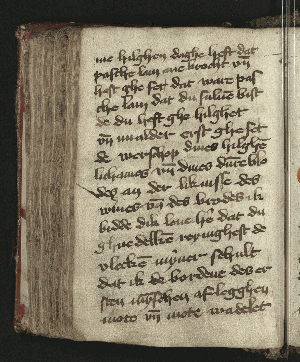 me hilghen daghe heft dat
pasche lam ane brocht vn̄
heft ghe set dat ware pas
che lam dat du sulue bist
de du heft ghe hilghet
vn̄ erst ghe set
de werschop dines hilghē
lichames vn̄ dines durē blo
des an der liknisse des
wines vn̄ des brodes ik
bidde dik leue he dat du
reynighest de
vlecke myner schult
dat ik de bordene des er
sten mȳschen af legghen
mote vn̄ mote wādelet